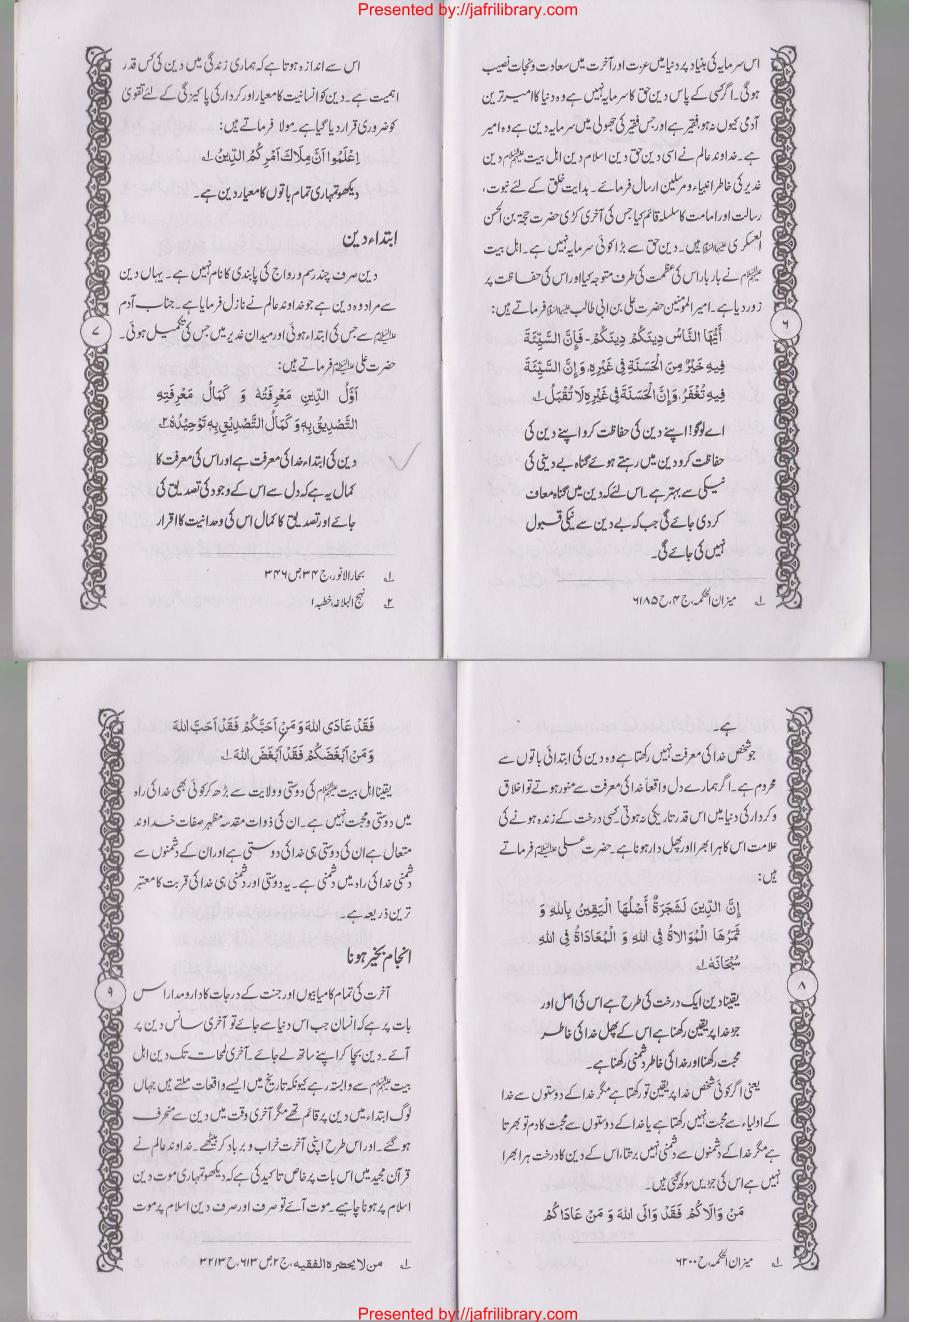 Presented by://jafrilibrary.com
اس سرمایہ کی بنیاد پر دنیا میں عزت اور آخرت میں سعادت و نجات نصیب
ہوگی۔ اگر کسی کے پاس دین حق کا سرمایہ نہیں ہے وہ دنیا کا امیر ترین
آدمی کیوں نہ ہو، فقیر ہے اور جس فقیر کی جھولی میں سرمایہ دین ہے وہ امیر
ہے۔ خداوند عالم نے اسی دین حق دین اسلام دین اہل بیت علیہم السلام دین
غدیر کی خاطر انبیاء و مرسلین ارسال فرمائے۔ ہدایت خلق کے لئے نبوت،
رسالت اور امامت کا سلسلہ قائم کیا جس کی آخری کڑی حضرت حجۃ بن الحسن
العسکری علیہما السلام ہیں۔ دین حق سے بڑا کوئی سرمایہ نہیں ہے۔ اہل بیت
علیہم السلام نے بار بار اس کی عظمت کی طرف متوجہ کیا اور اس کی حفاظت پر
زور دیا ہے۔ امیر المومنین حضرت علی بن ابی طالب علیہما السلام فرماتے ہیں:
أَيُّهَا النَّاسُ دِينَكُمْ دِينَكُمْ۔ فَإِنَّ السَّيِّئَةَ
فِيهِ خَيْرٌ مِنَ الْحَسَنَةِ فِي غَيْرِهٖ، وَ إِنَّ السَّيِّئَةَ
فِيهِ تُغْفَرُ، وَ إِنَّ الْحَسَنَةَ فِي غَيْرِهٖ لَا تُقْبَلُ ۱؎
اے لوگو! اپنے دین کی حفاظت کرو اپنے دین کی
حفاظت کرو دین میں رہتے ہوئے گناہ بے دینی کی
نیکی سے بہتر ہے۔ اس لئے کہ دین میں گناہ معاف
کر دی جائے گی جب کہ بے دین سے نیکی قبول
نہیں کی جائے گی۔
۱؎ میزان الحکمہ، ج ۴، ح ۶۱۸۵
۶
اس سے اندازہ ہوتا ہے کہ ہماری زندگی میں دین کی کس قدر
اہمیت ہے۔ دین کو انسانیت کا معیار اور کردار کی پاکیزگی کے لئے تقویٰ
کو ضروری قرار دیا گیا ہے۔ مولا فرماتے ہیں:
اِعْلَمُوا اَنَّ مِلَاكَ اَمْرِكُمُ الدِّينُ ۱؎
دیکھو تمہاری تمام باتوں کا معیار دین ہے۔
ابتداء دین
دین صرف چند رسم و رواج کی پابندی کا نام نہیں ہے۔ یہاں دین
سے مراد وہ دین ہے جو خداوند عالم نے نازل فرمایا ہے۔ جناب آدم
علیہ السلام سے جس کی ابتداء ہوئی اور میدان غدیر میں جس کی تکمیل ہوئی۔
حضرت علی علیہ السلام فرماتے ہیں:
اَوَّلُ الدِّينِ مَعْرِفَتُهٗ وَ كَمَالُ مَعْرِفَتِهِ
التَّصْدِيْقُ بِهٖ وَ كَمَالُ التَّصْدِيْقِ بِهٖ تَوْحِيْدُهٗ ۲؎
دین کی ابتداء خدا کی معرفت ہے اور اس کی معرفت کا
کمال یہ ہے کہ دل سے اس کے وجود کی تصدیق کی
جائے اور تصدیق کا کمال اس کی وحدانیت کا اقرار
۱؎ بحار الانور، ج ۳۴ ص ۳۴۶
۲؎ نہج البلاغہ، خطبہ ۱
۷
ہے۔
جو شخص خدا کی معرفت نہیں رکھتا ہے وہ دین کی ابتدائی باتوں سے
محروم ہے۔ اگر ہمارے دل واقعاً خدا کی معرفت سے منور ہوتے تو اخلاق
و کردار کی دنیا میں اس قدر تاریکی نہ ہوتی۔ کسی درخت کے زندہ ہونے کی
علامت اس کا ہرا بھرا اور پھل دار ہونا ہے۔ حضرت علی علیہ السلام فرماتے
ہیں:
إِنَّ الدِّينَ لَشَجَرَةٌ أَصْلُهَا الْيَقِينُ بِاللهِ وَ
ثَمَرُهَا الْمُوَالَاةُ فِي اللهِ وَ الْمُعَادَاةُ فِي اللهِ
سُبْحَانَهٗ ۱؎
یقینا دین ایک درخت کی طرح ہے اس کی اصل اور
جڑ خدا پر یقین رکھنا ہے اس کے پھل خدا کی خاطر
محبت رکھنا اور خدا کی خاطر دشمنی رکھنا ہے۔
یعنی اگر کوئی شخص خدا پر یقین تو رکھتا ہے مگر خدا کے دوستوں سے خدا
کے اولیاء سے محبت نہیں رکھتا ہے یا خدا کے دوستوں سے محبت کا دم تو بھرتا
ہے مگر خدا کے دشمنوں سے دشمنی نہیں برتتا، اس کے دین کا درخت ہرا بھرا
نہیں ہے اس کی جڑیں سوکھ گئی ہیں۔
مَنْ وَالَاكُمْ فَقَدْ وَالَى اللهَ وَ مَنْ عَادَاكُمْ
۱؎ میزان الحکمہ، ح ۶۲۰۰
۸
فَقَدْ عَادَى اللهَ وَ مَنْ اَحَبَّكُمْ فَقَدْ اَحَبَّ اللهَ
وَ مَنْ اَبْغَضَكُمْ فَقَدْ اَبْغَضَ اللهَ ۱؎
یقینا اہل بیت علیہم السلام کی دوستی و ولایت سے بڑھ کر کوئی بھی خدا کی راہ
میں دوستی و محبت نہیں ہے۔ ان کی ذوات مقدسہ مظہر صفات خداوند
متعال ہے ان کی دوستی ہی خدا کی دوستی ہے اور ان کے دشمنوں سے
دشمنی خدا کی راہ میں دشمنی ہے۔ یہ دوستی اور دشمنی ہی خدا کی قربت کا معتبر
ترین ذریعہ ہے۔
انجام بخیر ہونا
آخرت کی تمام کامیابیوں اور جنت کے درجات کا دارومدار اس
بات پر ہے کہ انسان جب اس دنیا سے جائے تو آخری سانس دین پر
آئے۔ دین بچا کر اپنے ساتھ لے جائے۔ آخری لمحات تک دین اہل
بیت علیہم السلام سے وابستہ رہے کیونکہ تاریخ میں ایسے واقعات ملتے ہیں جہاں
لوگ ابتداء میں دین پر قائم تھے مگر آخری وقت میں دین سے منحرف
ہو گئے۔ اور اس طرح اپنی آخرت خراب و برباد کر بیٹھے۔ خداوند عالم نے
قرآن مجید میں اس بات پر خاص تاکید کی ہے کہ دیکھو تمہاری موت دین
اسلام پر ہونا چاہیے۔ موت آئے تو صرف اور صرف دین اسلام پر موت
۱؎ من لا یحضرہ الفقیہ، ج ۲، ص ۶۱۳، ح ۳۲۱۳
۹
Presented by://jafrilibrary.com